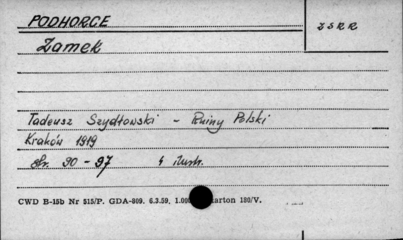 PODHORCE
ZSRR
Zamek
Tadeusz Szydłowski - Ruiny Polski
Kraków 1919
str. 90-97 4 ilustr.
CWD B-15b Nr 515/P. GDA-809. 6.3.59. karton 180/V.